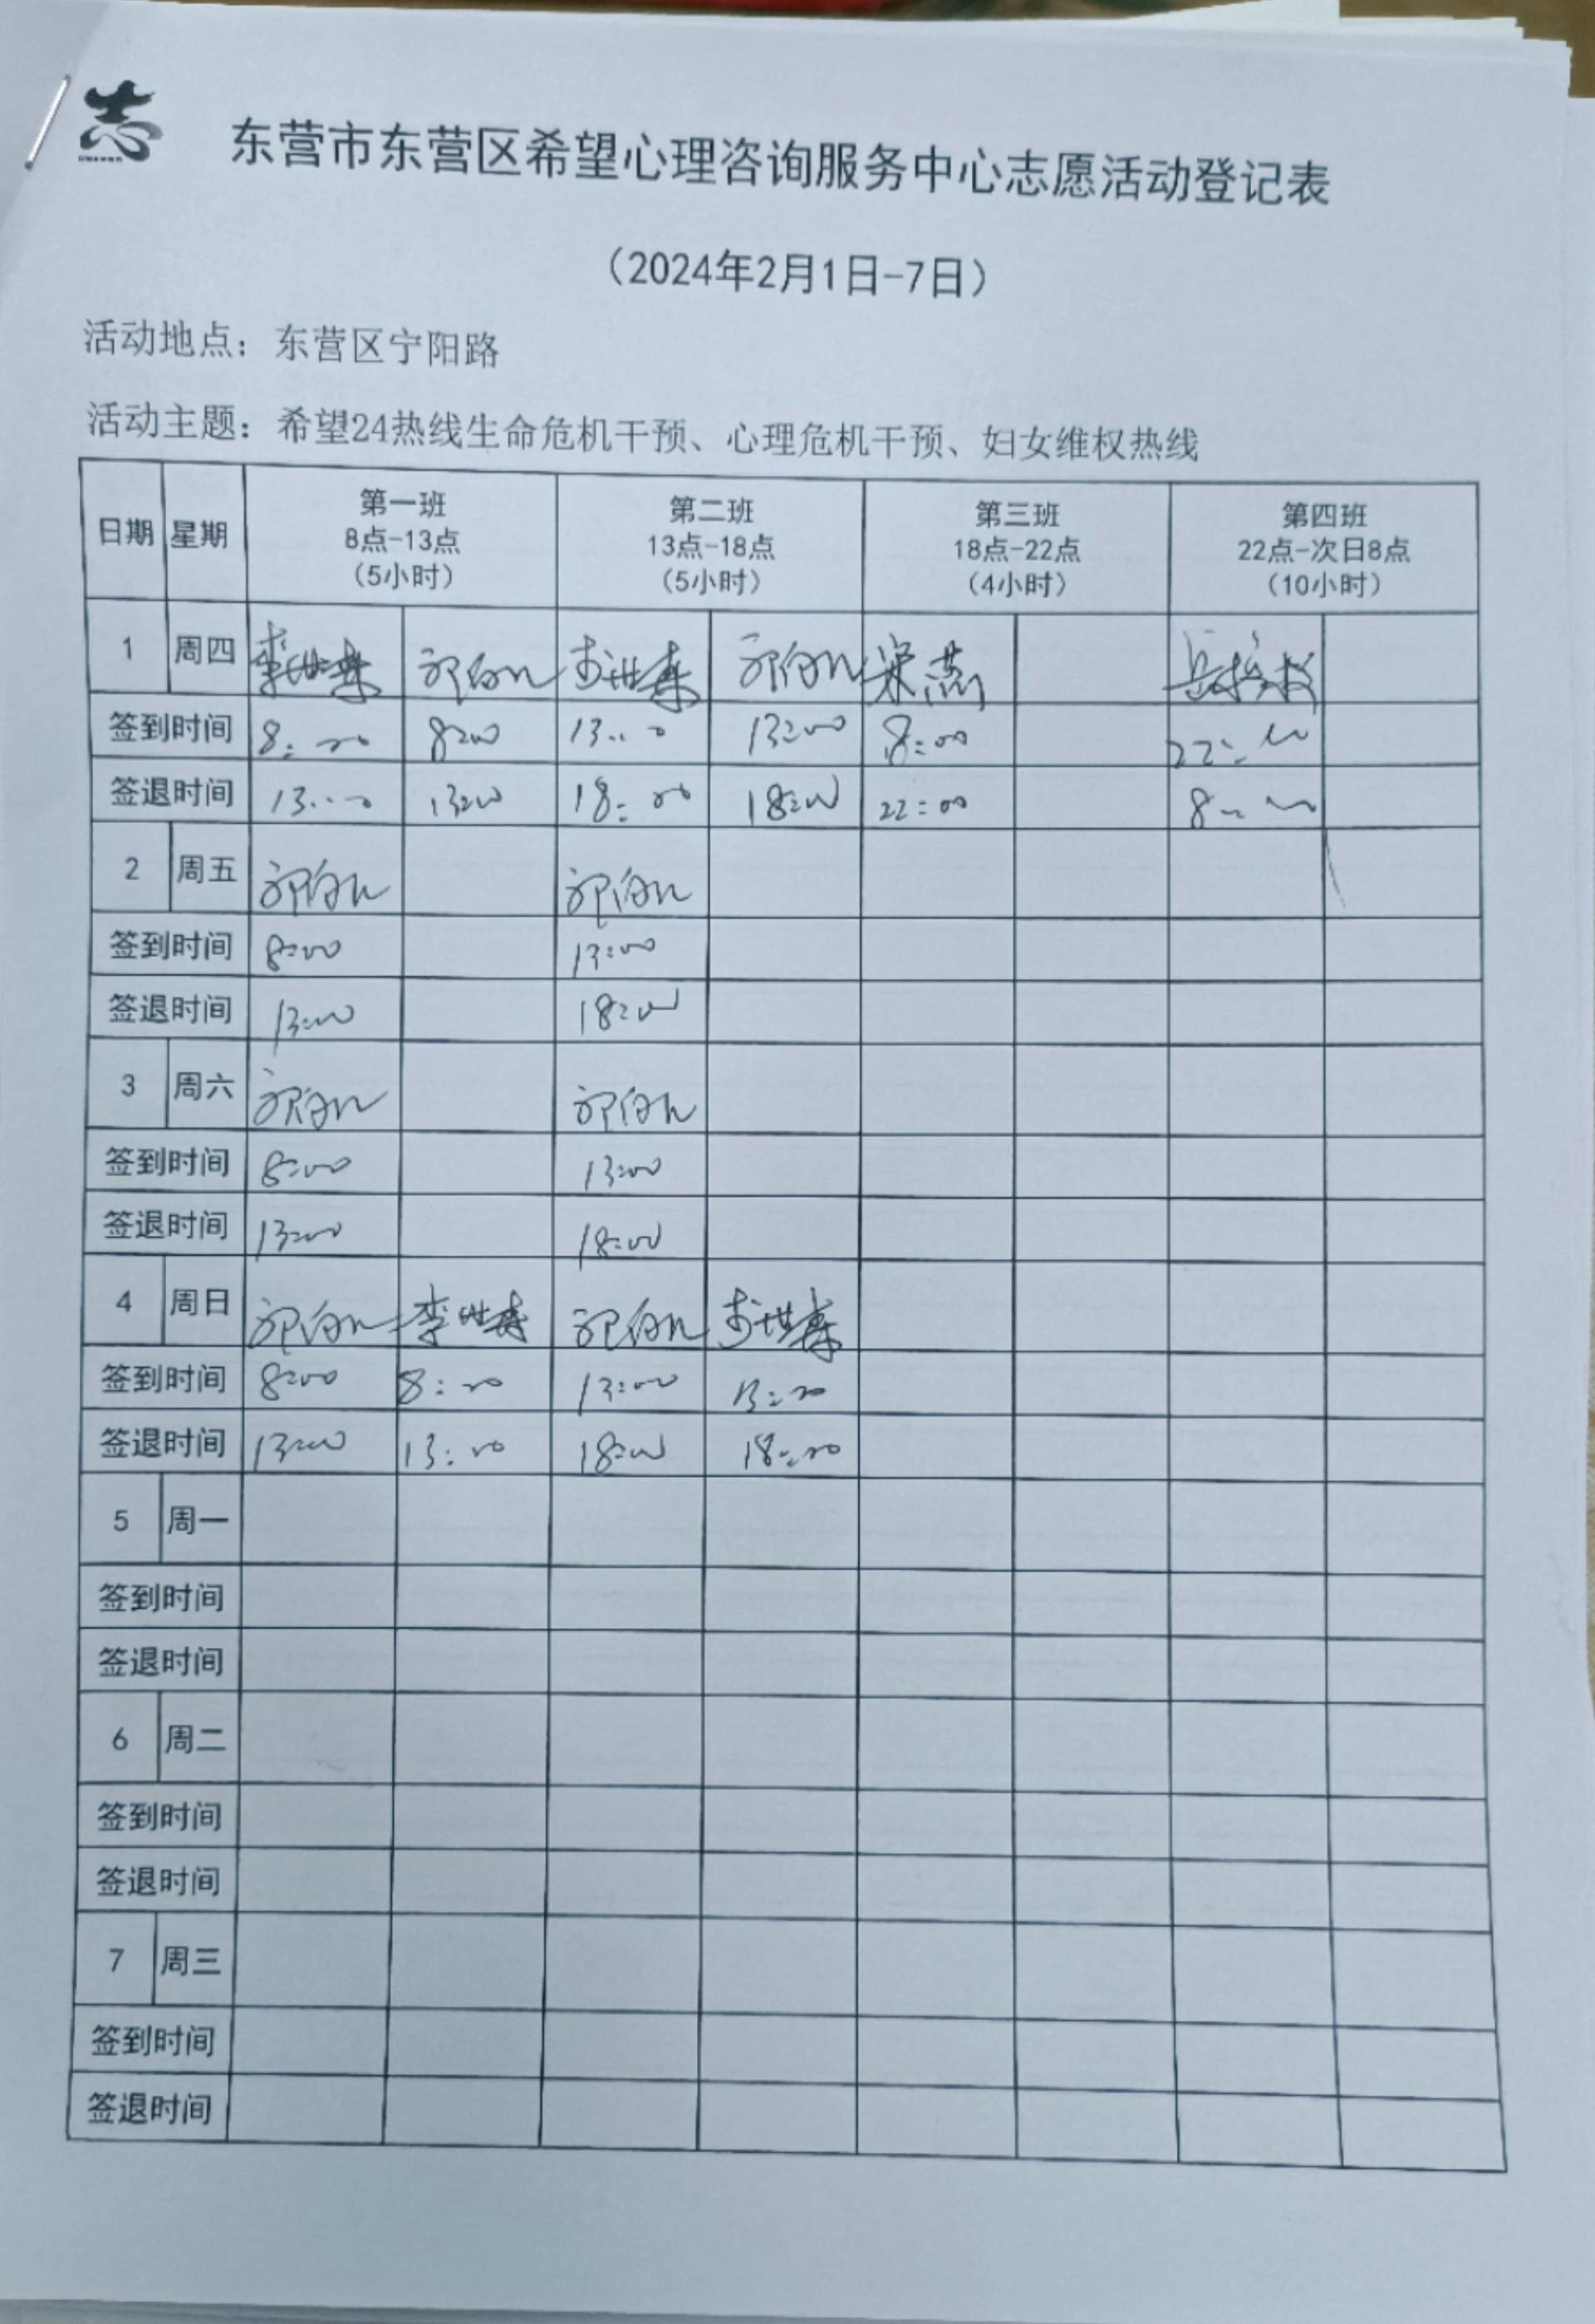 志
东营市东营区希望心理咨询服务中心志愿活动登记表
（2024年2月1日-7日）
活动地点：东营区宁阳路
活动主题：希望24热线生命危机干预、心理危机干预、妇女维权热线
日期 星期 第一班 8点-13点 （5小时） 第二班 13点-18点 （5小时） 第三班 18点-22点 （4小时） 第四班 22点-次日8点 （10小时）
1 周四 李世森 李世森 宋燕
签到时间 8:00 8:00 13:00 13:00 18:00 22:00
签退时间 13:00 13:00 18:00 18:00 22:00 8:00
2 周五
签到时间 8:00 13:00
签退时间 13:00 18:00
3 周六
签到时间 8:00 13:00
签退时间 13:00 18:00
4 周日 李世森 李世森
签到时间 8:00 8:00 13:00 13:00
签退时间 13:00 13:00 18:00 18:00
5 周一
签到时间
签退时间
6 周二
签到时间
签退时间
7 周三
签到时间
签退时间